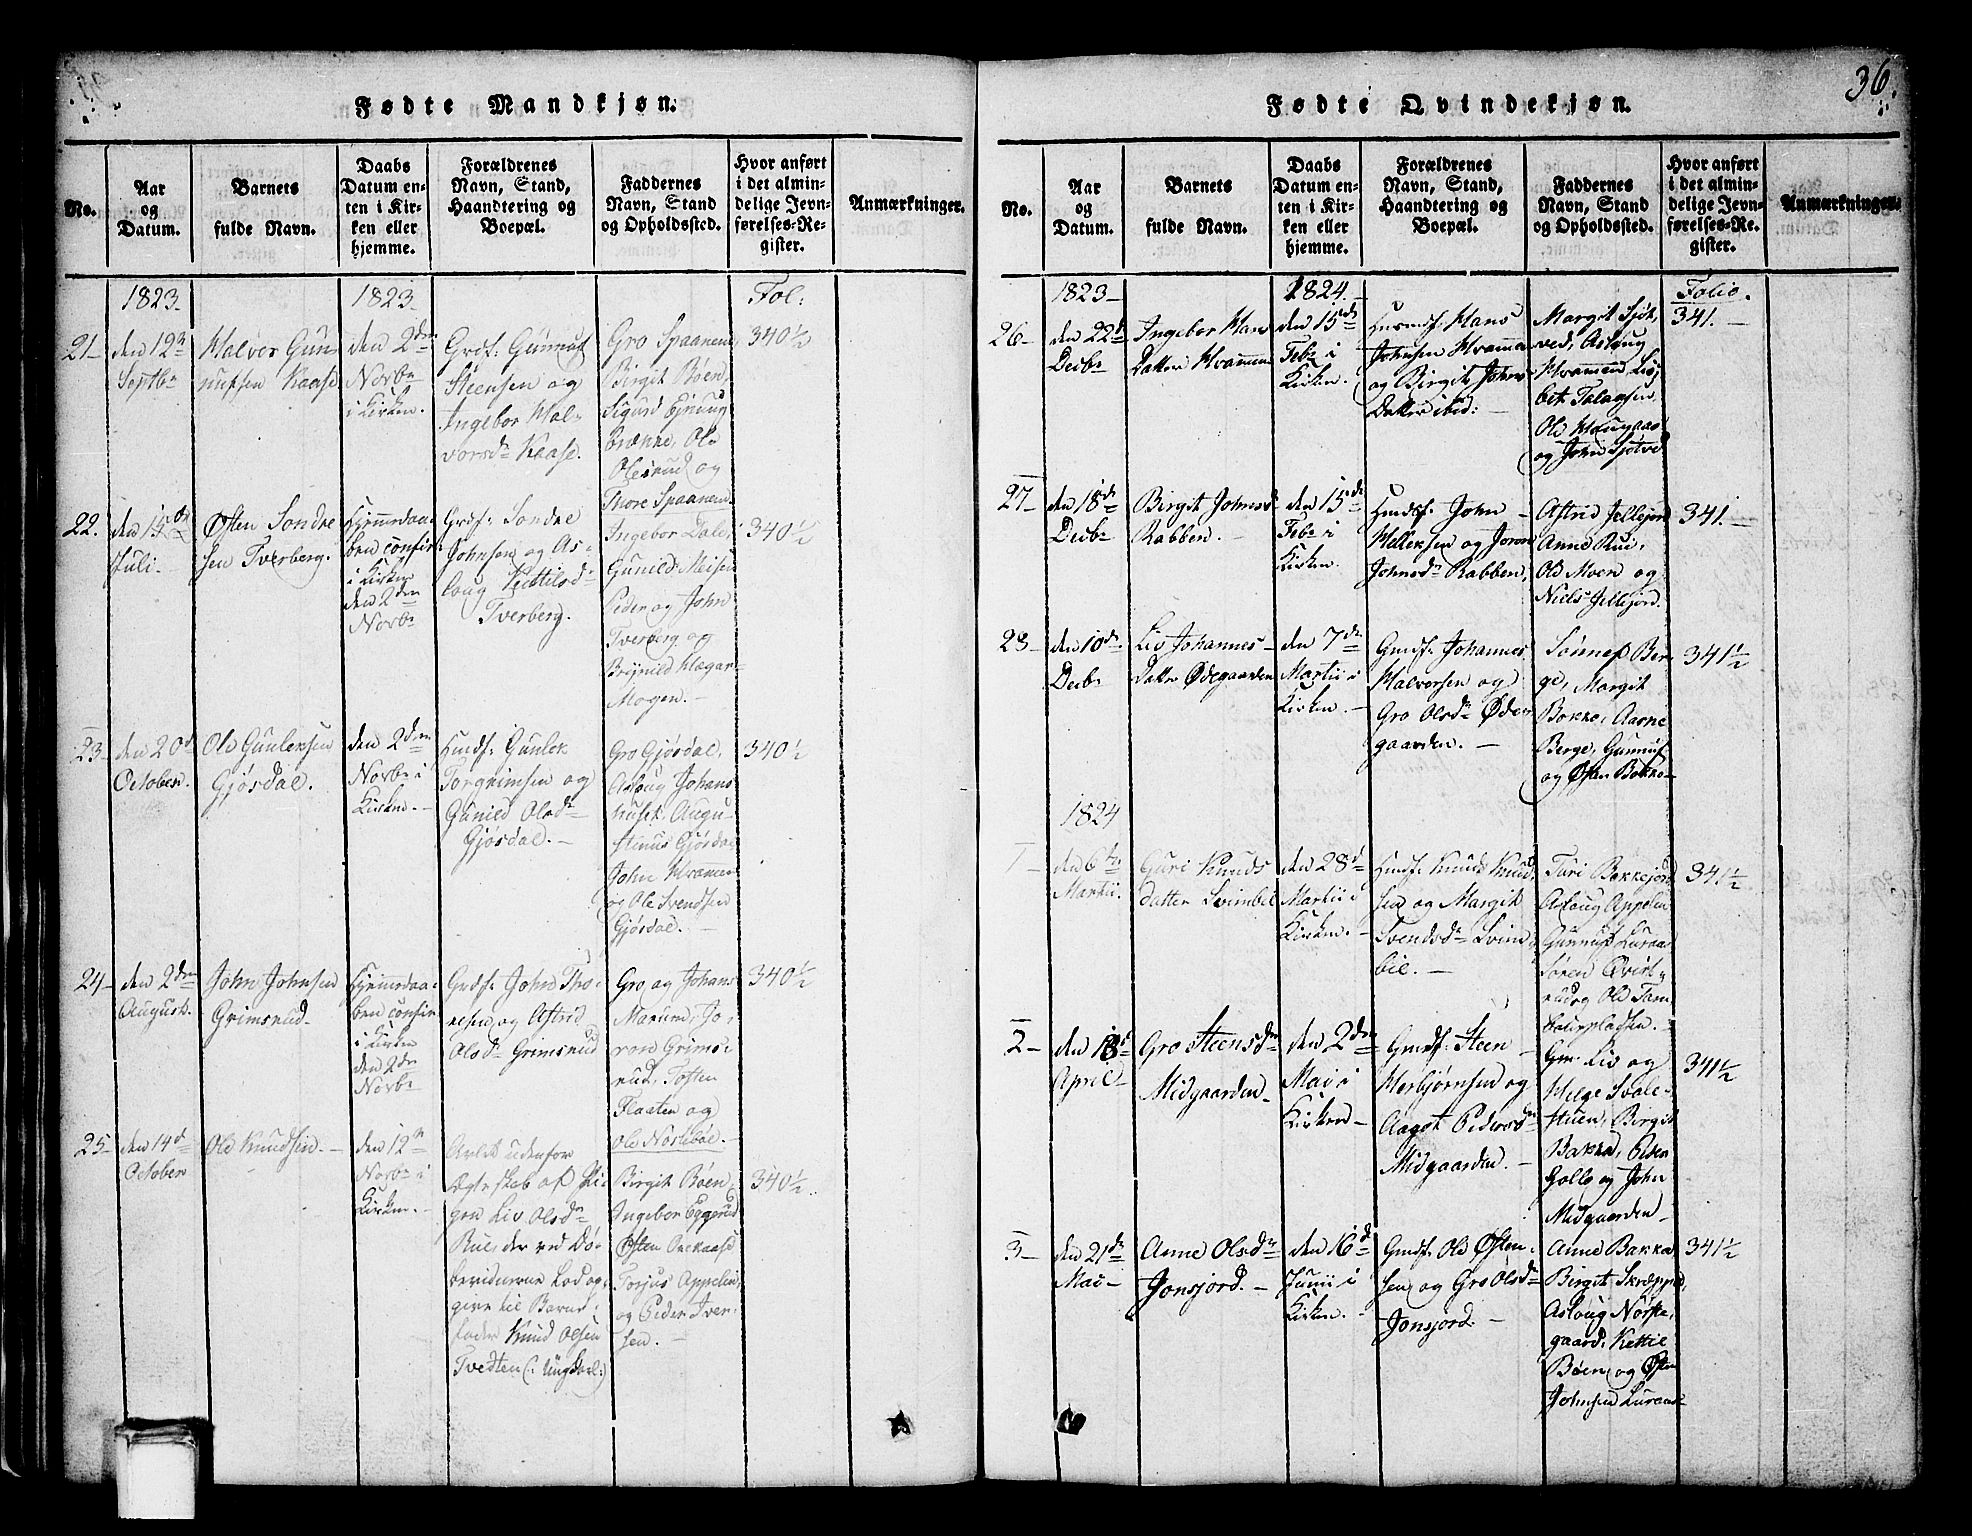 36.
Fødte Mandkjøn.
No.
Aar
og
Datum.
Barnets
fulde Navn.
Daabs
Datum en-
ten i Kir-
ken eller
hjemme.
Forældrenes
Navn, Stand,
Haandtering og
Boepæl.
Faddernes
Navn, Stand
og Opholdssted.
Hvor anført
i det almin-
delige Jevn-
førelses-Re-
gister.
Anmærkninger.
1823.
1823.
Fol:
21-
den 12te
Septbr
Halvor Gun-
nufsen Kaase
den 2den
Novbr
i Kirken.
Grdf: Gunnuf
Steensen og
Ingebor Hal-
vorsdr Kaase.
Gro Spaanem,
Birgit Bøen,
Sigurd Ejnung-
brække, Ole
Olesrud og
Thore Spaanem.
340½
22.
den 15de
Juli.
Østen Sondre
sen Tverberg.
Hjemmedaa-
ben confir:
i Kirken
den 2den
Novbr
Grdf: Sondre
Johnsen og As-
loug Kittilsdr
Tverberg.
Ingebor Dale,
Gunild Meisen
Peder og John
Tverberg og
Brynild Klægar-
Mogen.
340½
23-
den 20d
October.
Ole Gunleksen
Gjøsdal.
den 2den
Novbr i
Kirken.
Hmdf: Gunlek
Torgrimsen og
Gunild Olsdr
Gjøsdal.
Gro Gjøsdal,
Asloug Johans
huset, Augu-
stinus Gjøsdal
John Kvammen
og Ole Svendsen
Gjøsdal.
340½
24-
den 2den
August.
John Johnsen
Grimsrud.
Hjemmedaa-
ben confir
i Kirken
den 2den
Novbr
Grdf: John Tho-
resen og Astrid
Olsdr Grimsrud
Gro og Johans
Marum, Jo-
ron Grims-
rud, Tosten
Flaaten og
Ole Nørstebøe.
340½
25-
den 14d
October
Ole Knudsen.
den 12te
Novbr i
Kirken.
Avlet udenfor
Ægteskab af Pi-
gen Liv Olsdr
Rue, der ved Dø-
beviderne lod op-
give til Barne-
fader Knud Olsen
Tvedten (: Ungkarl:)
Birgit Bøen,
Ingebor Eggerud
Østen Ovekaase
Torjus Appelin,
og Peder Iver-
sen.
340½
Fødte Qvindekjøn.
No.
Aar
og
Datum.
Barnets
fulde Navn.
Daabs
Datum en-
ten i Kir-
ken eller
hjemme.
Forældrenes
Navn, Stand,
Haandtering og
Boepæl.
Faddernes
Navn, Stand
og Opholdssted.
Hvor anført
i det almin-
delige Jevn-
førelses-Re-
gister.
Anmærkninger.
1823-
1824.
Folio.
26-
den 22d
Decbr
Ingebor Hans
Datter Kvammen
den 15de
Febr i
Kirken.
Husmdf: Hans
Johnsen Kvamme
og Birgit Johns-
Datter ibid:
Margit Sjøt-
ved, Asloug
Kvamen, Lis-
bet Talaasen,
Ole Haugaas
og John Sjøtved
341.
27-
den 18de
Decbr
Birgit Johnsdr
Rabben.
den 15de
Febr i
Kirken.
Hmdsf: John
Helleksen og Joron
Johnsdr Rabben,
Astrid Jellejord
Anne Rui,
Ole Moen og
Niels Jellejord.
341.
28-
den 10de
Decbr
Liv Johannes-
Datter Ødegaarden
den 7de
Martii i
Kirken.
Gmdf: Johannes
Halvorsen og
Gro Olsdr Øde-
gaarden.
Sønnef Ber-
ge, Margit
Bakke, Aasne
Berge, Gunnuf
og Østen Bakke
341½
1824
1-
den 6te
Martii.
Guri Knuds
datter Svimbil
den 28d
Martii i
Kirken.
Hmdf: Knud Knud-
sen og Margit
Svendsdr Svim-
bil.
Turi Bakkejord
Asloug Appelin
Gunnuf Luraas
Søren Qvist-
rud og Ole Tam-
bourpladsen.
341½
2-
den 18d
April
Gro Steensdr
Midgaarden
den 2den
Mai i
Kirken
Gmdf: Steen
Herbjørnsen og
Aagot Pedersdr
Midgaarden.
Gm: Liv og
Helge Svale-
Huen, Birgit
Bakka, Peder
Gollo og John
Midgaarden
341½
3-
den 21de
Mai
Anne Olsdr
Jonsjord.
den 16d
Junii i
Kirken.
Gmdf: Ole Østen-
sen og Gro Olsdr
Jonsjord.
Anne Bakka
Birgit Skræppe,
Asloug Nørste-
gaard, Kittil
Bøen, og Østen
Johnsen Luraas
341½